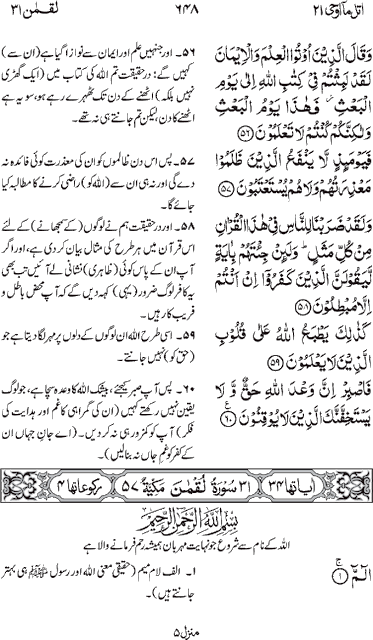 اتل مآ اوحی ۲۱
۶۴۸
لقمٰن ۳۱
وَقَالَ الَّذِيْنَ اُوْتُوا الْعِلْمَ وَالْاِيْمَانَ
لَقَدْ لَبِثْتُمْ فِيْ كِتٰبِ اللّٰهِ اِلٰى يَوْمِ
الْبَعْثِ ۫ فَهٰذَا يَوْمُ الْبَعْثِ
وَلٰكِنَّكُمْ كُنْتُمْ لَا تَعْلَمُوْنَ ﴿۵۶﴾
فَيَوْمَئِذٍ لَّا يَنْفَعُ الَّذِيْنَ ظَلَمُوْا
مَعْذِرَتُهُمْ وَلَا هُمْ يُسْتَعْتَبُوْنَ ﴿۵۷﴾
وَلَقَدْ ضَرَبْنَا لِلنَّاسِ فِيْ هٰذَا الْقُرْاٰنِ
مِنْ كُلِّ مَثَلٍ ؕ وَلَئِنْ جِئْتَهُمْ بِاٰيَةٍ
لَّيَقُوْلَنَّ الَّذِيْنَ كَفَرُوْٓا اِنْ اَنْتُمْ
اِلَّا مُبْطِلُوْنَ ﴿۵۸﴾
كَذٰلِكَ يَطْبَعُ اللّٰهُ عَلٰى قُلُوْبِ
الَّذِيْنَ لَا يَعْلَمُوْنَ ﴿۵۹﴾
فَاصْبِرْ اِنَّ وَعْدَ اللّٰهِ حَقٌّ وَّ لَا
يَسْتَخِفَّنَّكَ الَّذِيْنَ لَا يُوْقِنُوْنَ ﴿۶۰﴾ ع
۵۶۔ اور جنہیں علم اور ایمان سے نوازا گیا ہے (ان سے)
کہیں گے: درحقیقت تم اللہ کی کتاب میں (ایک گھڑی
نہیں بلکہ) اٹھنے کے دن تک ٹھہرے رہے ہو، سو یہ ہے
اٹھنے کا دن، لیکن تم جانتے ہی نہ تھے۔
۵۷۔ پس اس دن ظالموں کو ان کی معذرت کوئی فائدہ نہ
دے گی اور نہ ہی ان سے (اللہ کو) راضی کرنے کا مطالبہ کیا
جائے گا۔
۵۸۔ اور درحقیقت ہم نے لوگوں (کے سمجھانے) کے لئے
اس قرآن میں ہر طرح کی مثال بیان کر دی ہے، اور اگر
آپ ان کے پاس کوئی (ظاہری) نشانی لے آئیں تب بھی
یہ کافر لوگ ضرور (یہی) کہہ دیں گے کہ آپ محض باطل و
فریب کار ہیں۔
۵۹۔ اسی طرح اللہ ان لوگوں کے دلوں پر مہر لگا دیتا ہے جو
(حق کو) نہیں جانتے۔
۶۰۔ پس آپ صبر کیجئے، بیشک اللہ کا وعدہ سچا ہے، جو لوگ
یقین نہیں رکھتے کہیں (ان کی گمراہی کا غم اور ہدایت کی
فکر) آپ کو کمزور ہی نہ کر دیں۔ (اے جانِ جہاں ان
کے کفر کو غمِ جاں نہ بنالیں)۔
اٰیاتھا ۳۴
۳۱ سُوْرَةُ لُقْمٰنَ مَكِّيَّةٌ ۵۷
رکوعاتھا ۴
بِسْمِ اللّٰهِ الرَّحْمٰنِ الرَّحِيْمِ
اللہ کے نام سے شروع جو نہایت مہربان ہمیشہ رحم فرمانے والا ہے
الٓمّٓ ﴿۱﴾
۱۔ الف لام میم (حقیقی معنی اللہ اور رسول ﷺ ہی بہتر
جانتے ہیں)۔
منزل ۵